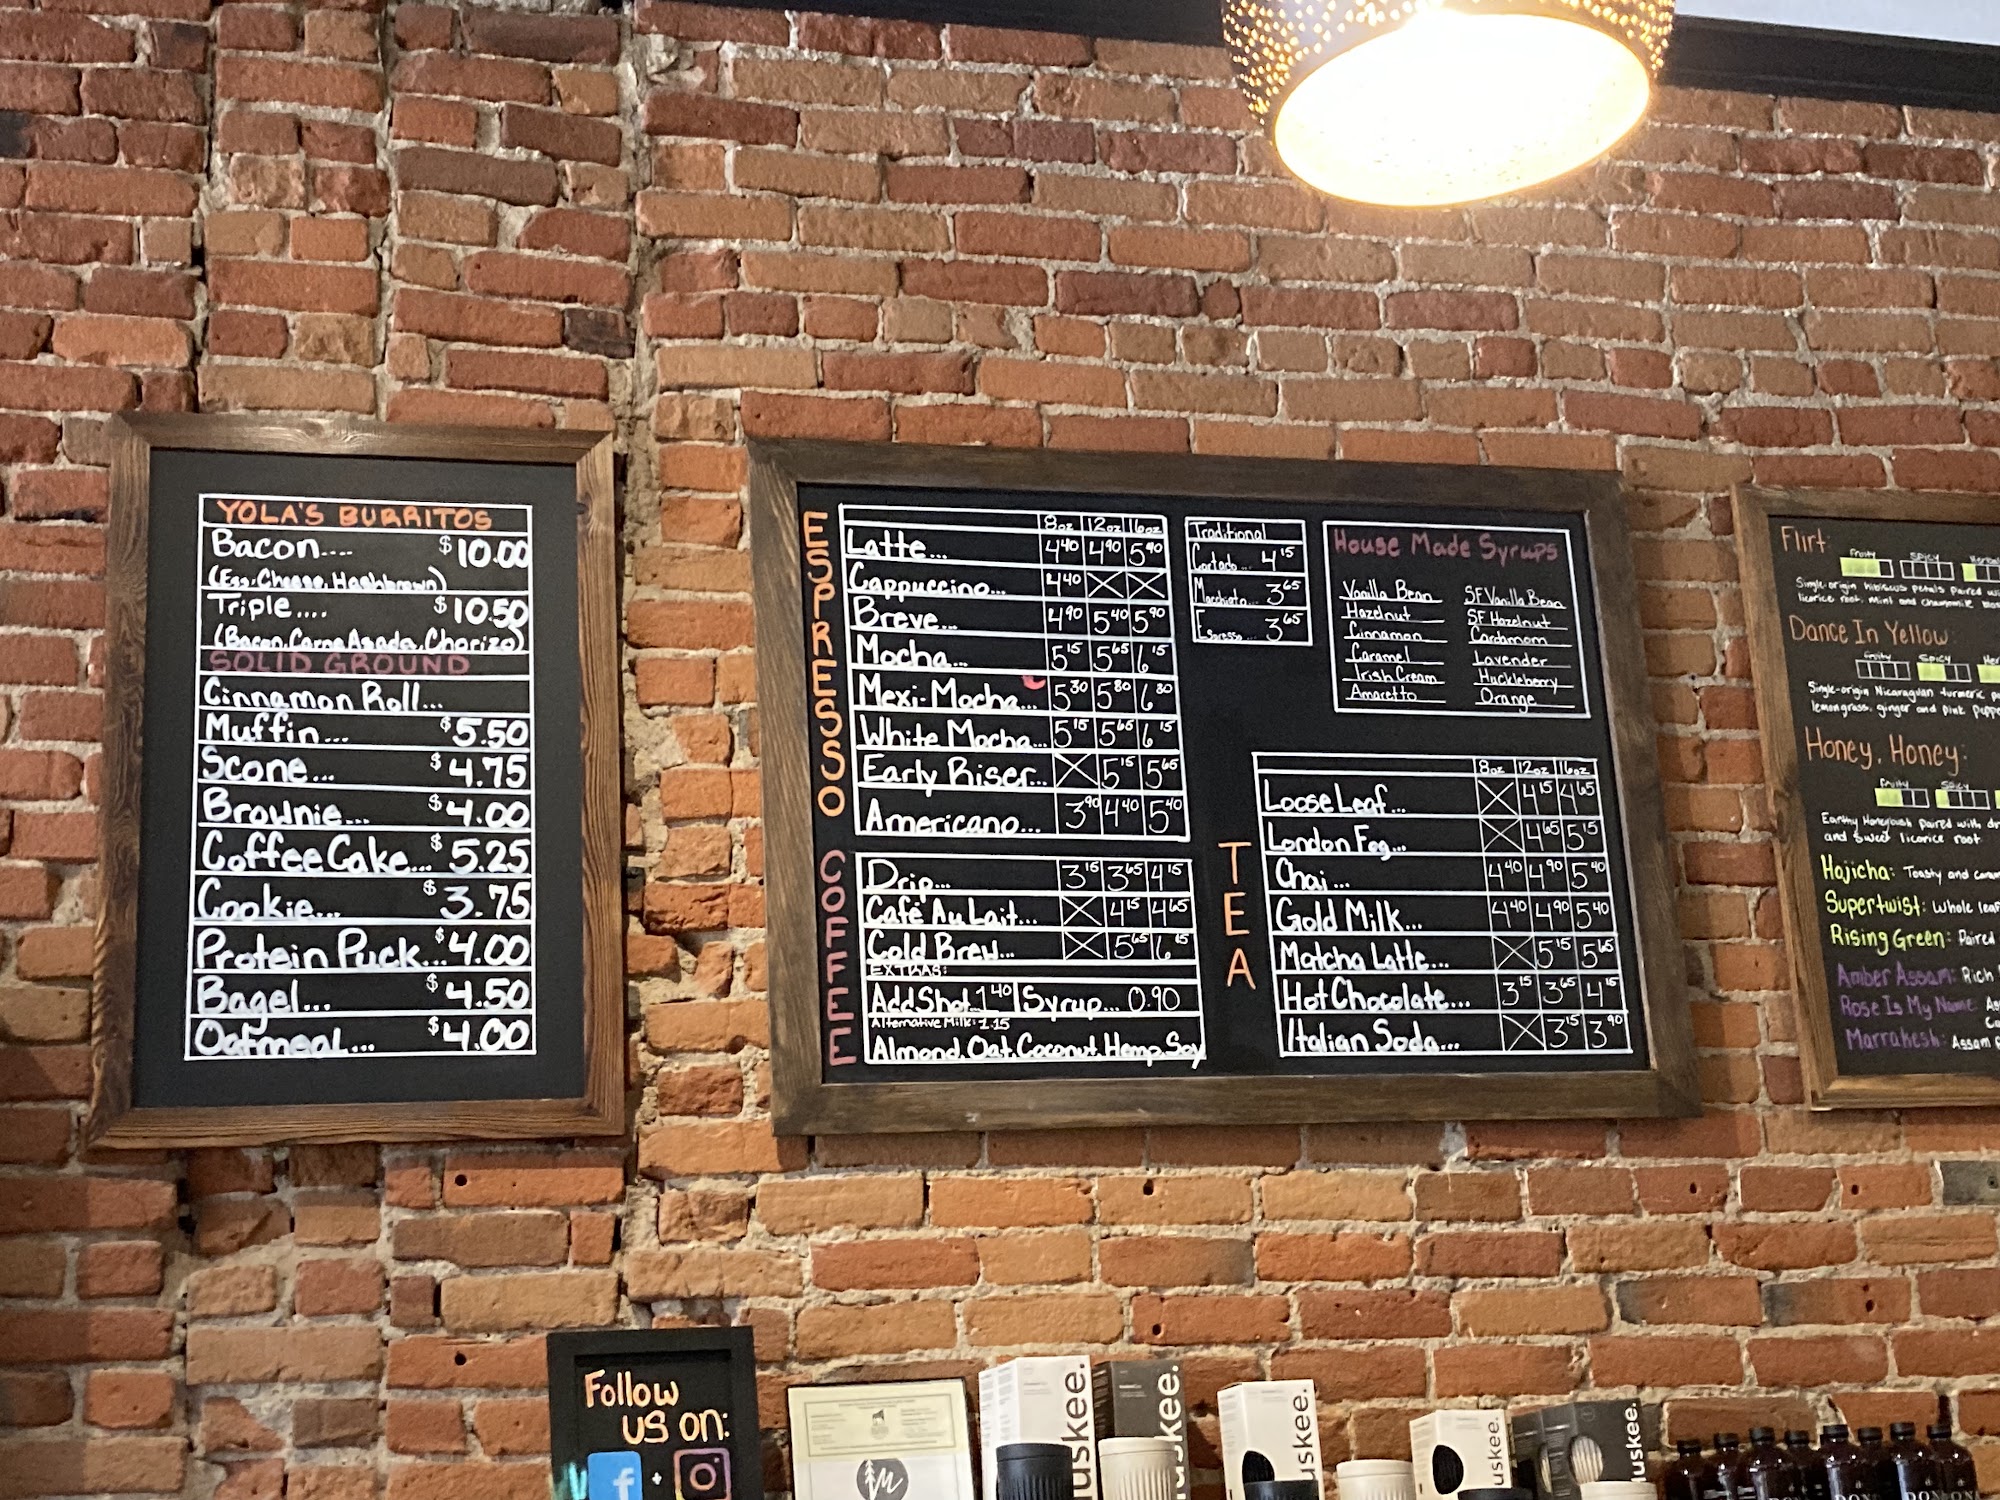 YOLA'S BURRITOS
Bacon.... $10.00
(Egg, Cheese, Hashbrown)
Triple.... $10.50
(Bacon, Carne Asada, Chorizo)
SOLID GROUND
Cinnamon Roll...
Muffin... $5.50
Scone... $4.75
Brownie... $4.00
Coffee Cake... $5.25
Cookie... $3.75
Protein Puck... $4.00
Bagel... $4.50
Oatmeal... $4.00
ESPRESSO
8oz 12oz 16oz
Latte... 4.40 4.90 5.90
Cappuccino... 4.40
Breve... 4.90 5.40 5.90
Mocha... 5.15 5.65 6.15
Mexi-Mocha... 5.30 5.80 6.30
White Mocha... 5.15 5.65 6.15
Early Riser... 5.15 5.65
Americano... 3.90 4.40 5.40
COFFEE
Drip... 3.15 3.65 4.15
Café Au Lait... 4.15 4.65
Cold Brew... 5.65 6.15
EXTRAS:
Add Shot..1.40 Syrup... 0.90
Alternative Milk: 1.15
Almond, Oat, Coconut, Hemp, Soy
Traditional
Cortado... 4.15
Macchiato... 3.65
Espresso... 3.65
House Made Syrups
Vanilla Bean SF Vanilla Bean
Hazelnut SF Hazelnut
Cinnamon Cardamom
Caramel Lavender
Irish Cream Huckleberry
Amaretto Orange
TEA
8oz 12oz 16oz
Loose Leaf... 4.15 4.65
London Fog... 4.65 5.15
Chai... 4.40 4.90 5.40
Gold Milk... 4.40 4.90 5.40
Matcha Latte... 5.15 5.65
Hot Chocolate... 3.15 3.65 4.15
Italian Soda... 3.15 3.90
Flirt:
Fruity Spicy Herbal
Single-origin hibiscus petals paired
licorice root, mint and chamomile
Dance In Yellow:
Fruity Spicy
Single-origin Nicaraguan turmeric
lemongrass, ginger and pink
Honey, Honey:
Fruity Spicy
Earthy Honeybush paired with
and sweet licorice root
Hojicha: Toasty and
Supertwist: Whole leaf
Rising Green: Paired
Amber Assam: Rich
Rose Is My Name:
Marrakesh: Assam
Follow
us on:
f + 
huskee.
huskee.
huskee.
huskee.
huskee.